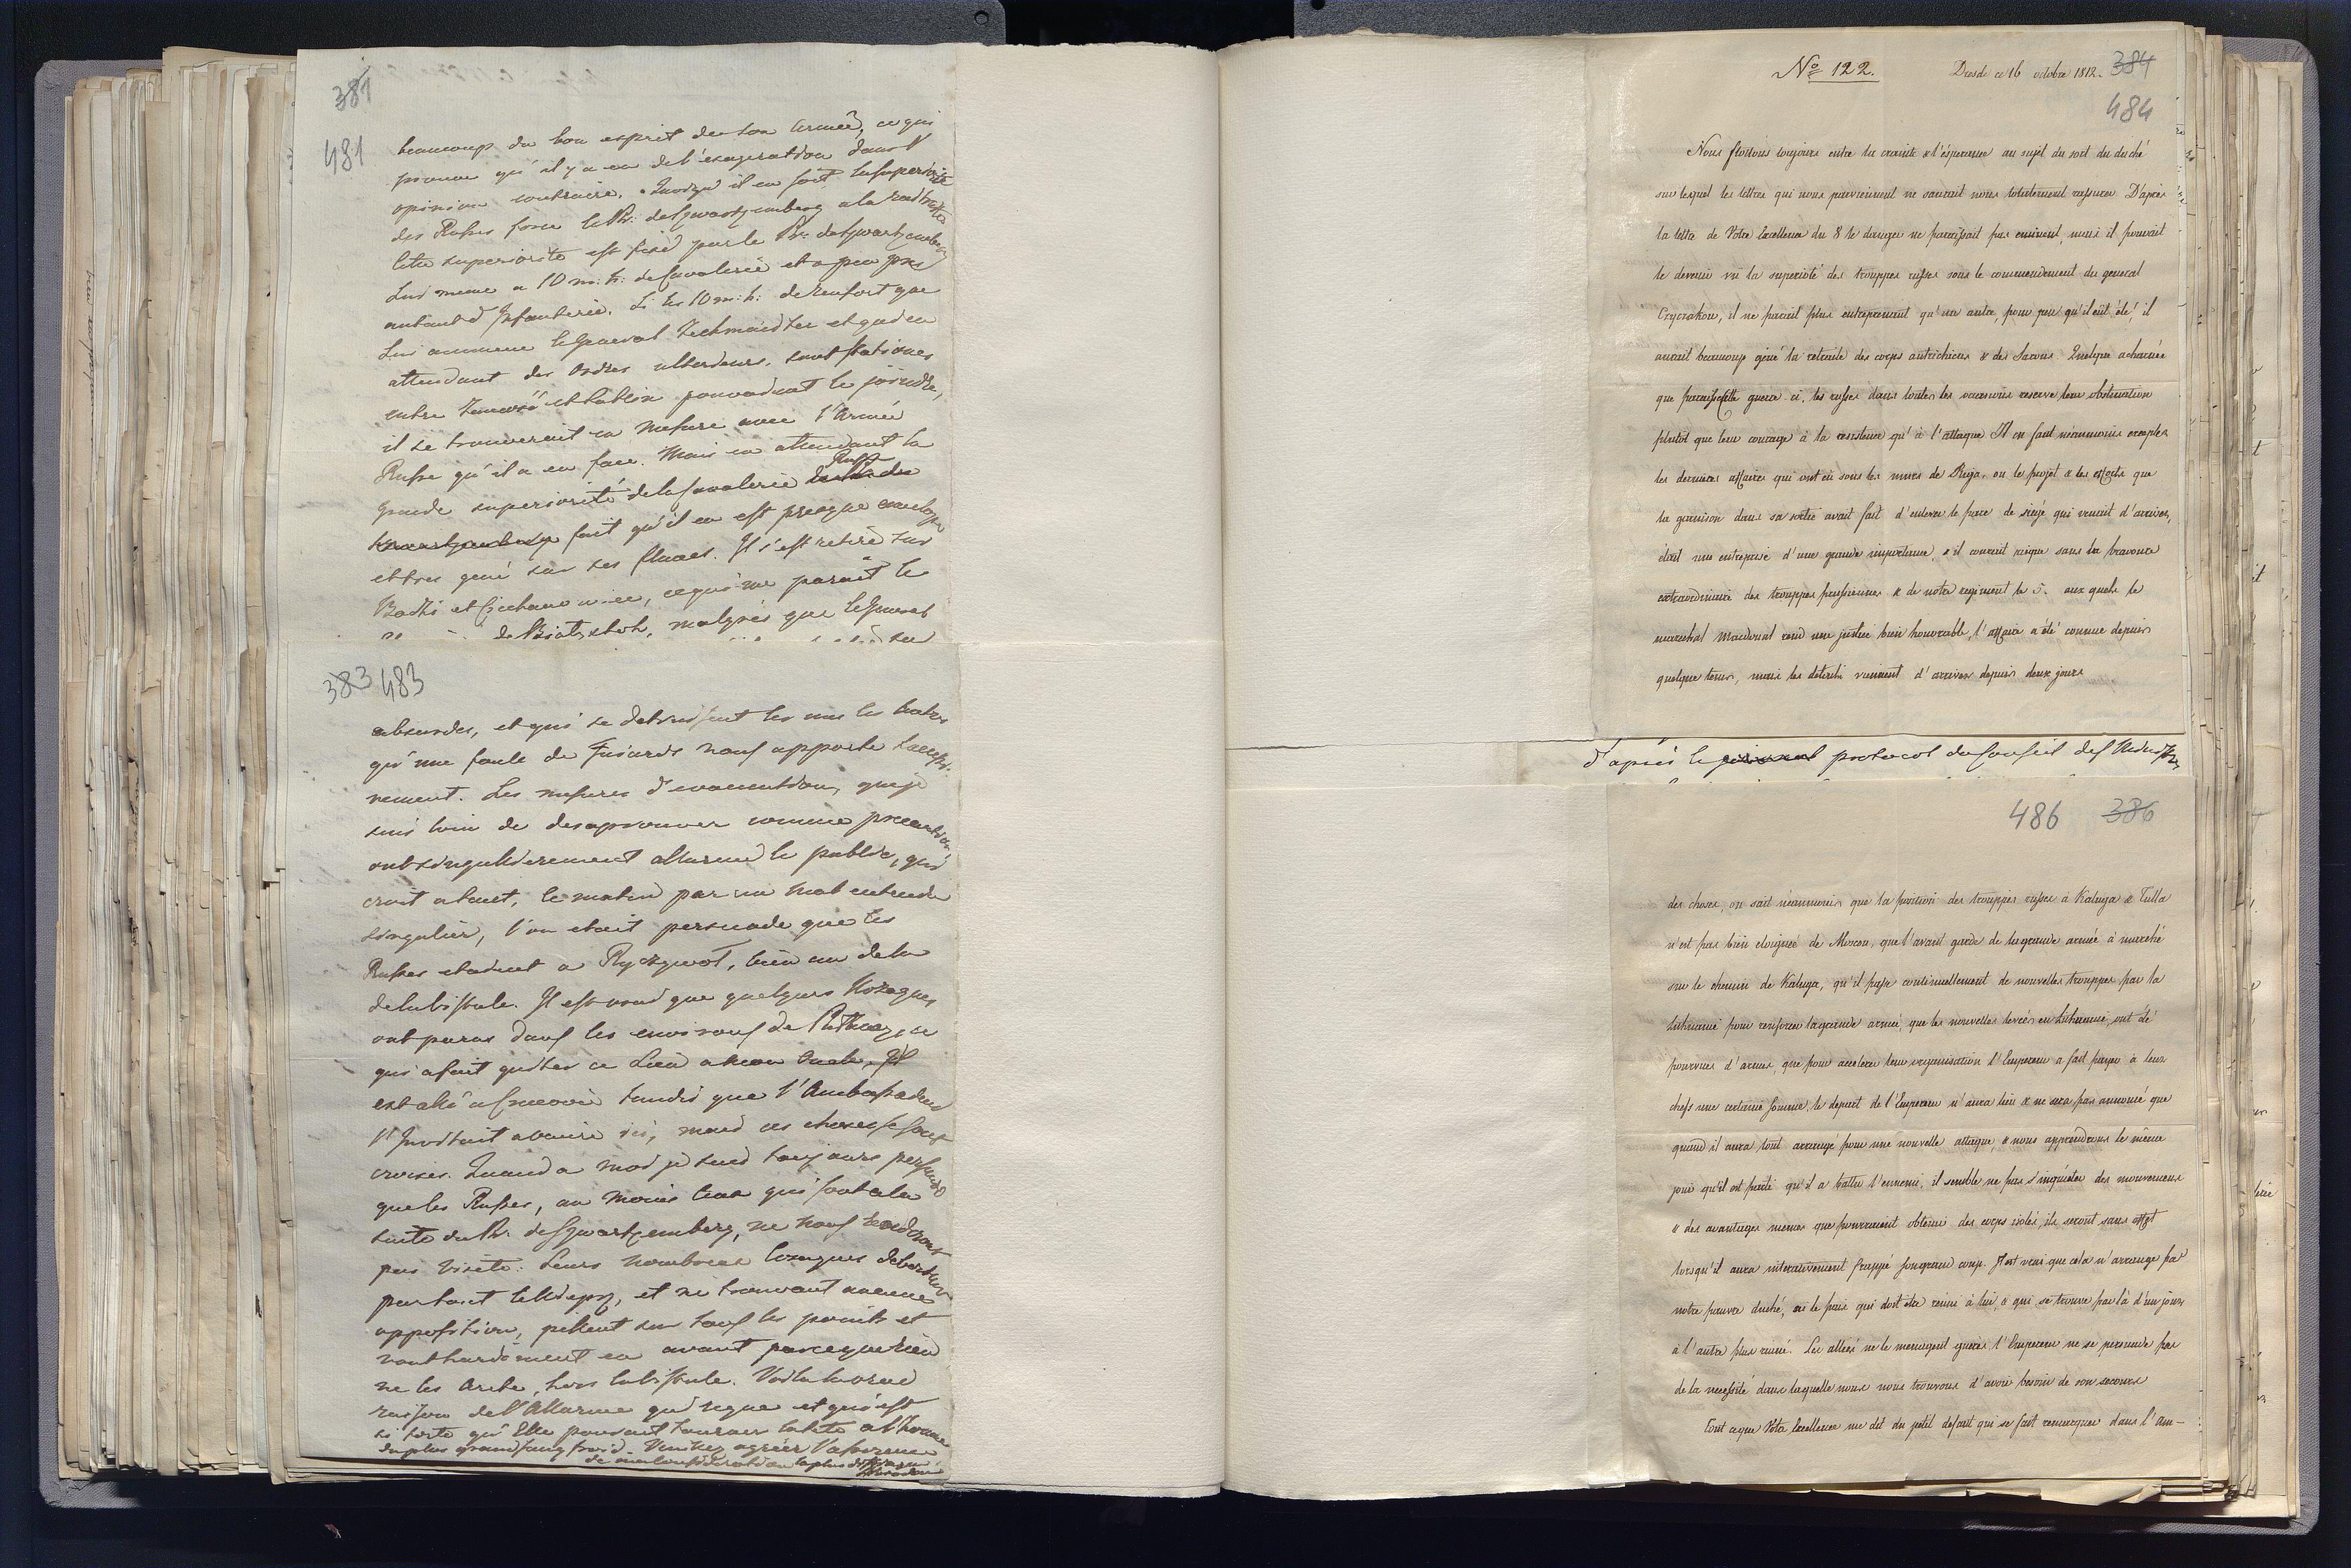 381
481
beaucoup du bon esprit de son Armée, ce qui
prouve qu'il y a eu de l'exageration dans l'
opinion contraire. Quoiqu'il en soit la superiorité
des Russes force le Pr: de Schwartzenberg a la
cette superiorité est fixé par le Pr: de Schwartzenberg
Lui meme a 10 m: h: de Cavalerie et a peu pres
autant d'Infanterie. Si les 10 m: h: de renfort que
Lui ammene le General et qui en
attendant des Ordres ulterieurs, sont stationés
entre et Lublin pouvaient le joindre,
il se trouverait en mesure avec l'Armée
Russe qu'il a en face. Mais en attendant la
grande superiorité de la Cavalerie Russe
fait qu'il en est presque
et tres gené sur ses flancs. Il s'est retiré sur
et Ciechanowiec, ce qui me parait le
malgrés que le General
383 483
absurdes, et qui se detruisent les uns les autres
qu'une foule de Fuiards nous apporte
nement. Les mesures d'evacuation, que je
suis loin de desaprouver comme precaution,
ont singulierement allarmé le public, qui
croit a tout, ce matin par un mal entendu
singulier, l'on etait persuadé que les
Russes etaient a Ryczywoł, bien au dela
de la Vistule. Il est vrai que quelques Kozaques
ont parus dans les environs de ce
qui a fait quitter ce Lieu a mon Il
est allé a tandis que l'Ambassadeur
l'Invitait a venir ici, mais ces choses se sont
croisés. Quand a moi je suis toujours persuadé
que les Russes, au moins ceux qui sont a la
suite du Pr: de Schwartzenberg, ne nous rendront
pas visite. Leurs nombreux Cozaques
partout et ne trouvant aucune
opposition, pillent sur tous les points et
vont hardiment en avant parceque rien
ne les Arete, hors la Vistule. Voila la vraie
raison de l'Allarme qui regne et qui est
si forte qu'Elle pouvait tourner la tete a l'homme
du plus grand sang froid. Veuillez agréer l'assurance
de ma Consideration la plus distinguée
No 122.
Dresde ce 16 octobre 1812.
384
484
Nous flottons toujours entre la crainte & l'ésperance au sujet du sort du duché
sur lequel les lettres qui nous parviennent ne sauroit nous totalement rassurer. D'après
la lettre de Votre Excellence du 8 le danger ne paraissait pas eminent, mais il pouvait
le devenir vû la superioté des trouppes russes sous le commendement du general
Czyczakow, il ne parait plus entreprenant qu'un autre, pour peu qu'il eût été, il
aurait beaucoup géné la retraite des corps autrichiens & des Saxons. Quelque acharnée
que paraisse cette guerre-ci, les russes dans toutes les occasions reserve leur obstination
plutôt que leur courage à la resistence qu'à l'attaque. Il en faut néanmoins excepter
les dernieres affaires qui ont eû sous les murs de Riga, ou le projet & les efforts que
la garnison dans sa sortie avait fait d'enlever le parc de siége qui venait d'arriver,
était une entreprise d'une grande importance, & il courait risque sans la bravoure
extraordinaire des trouppes prussiennes & de notre regiment le 5. aux quels le
marechal Macdonal rend une justice bien honorable, l'affaire a été connue depuis
quelque tems, mais les détails viennent d'arriver depuis deux jours
d'après le protocol du Conseil des Ministres
486 386
des choses, on sait néanmoins que la position des trouppes russes à Kaluga & Tulla
n'est pas bien éloignée de Moscou, que l'avant garde de la grande armée à marché
sur le chemin de Kaluga, qu'il passe continuellement de nouvelles trouppes par la
Lithuanie pour renforcer la grande armée, que les nouvelles levées en Lithuanie, ont été
pourvues d'armes, que pour accelerer leur organisation l'Empereur a fait payer à leurs
chefs une certaine somme, le depart de l'Empereur n'aura lieu & ne sera pas annoncé que
quand il aura tout arrangé pour une nouvelle attaque, & nous apprendrons le même
jour qu'il est parti qu'il a battu l'ennemi, il semble ne pas s'inquiéter des mouvemens
& des avantages memes que pourraient obtenir des corps isolés, ils seront sans effet
lorsqu'il aura interieurement frappé son grand coup. Il est vrai que cela n'arrange pas
notre pauvre duché, ni le pais qui doit etre reuni à lui, & qui se trouve par là d'un jour
à l'autre plus ruiné. Les alliés ne le menagent gueres, l'Empereur ne se persuade pas
de la necessité dans laquelle nous nous trouvons d'avoir besoin de son secours
Tout ce que Votre Excellence me dit du petit defaut qui se fait remarquer dans l'Am-